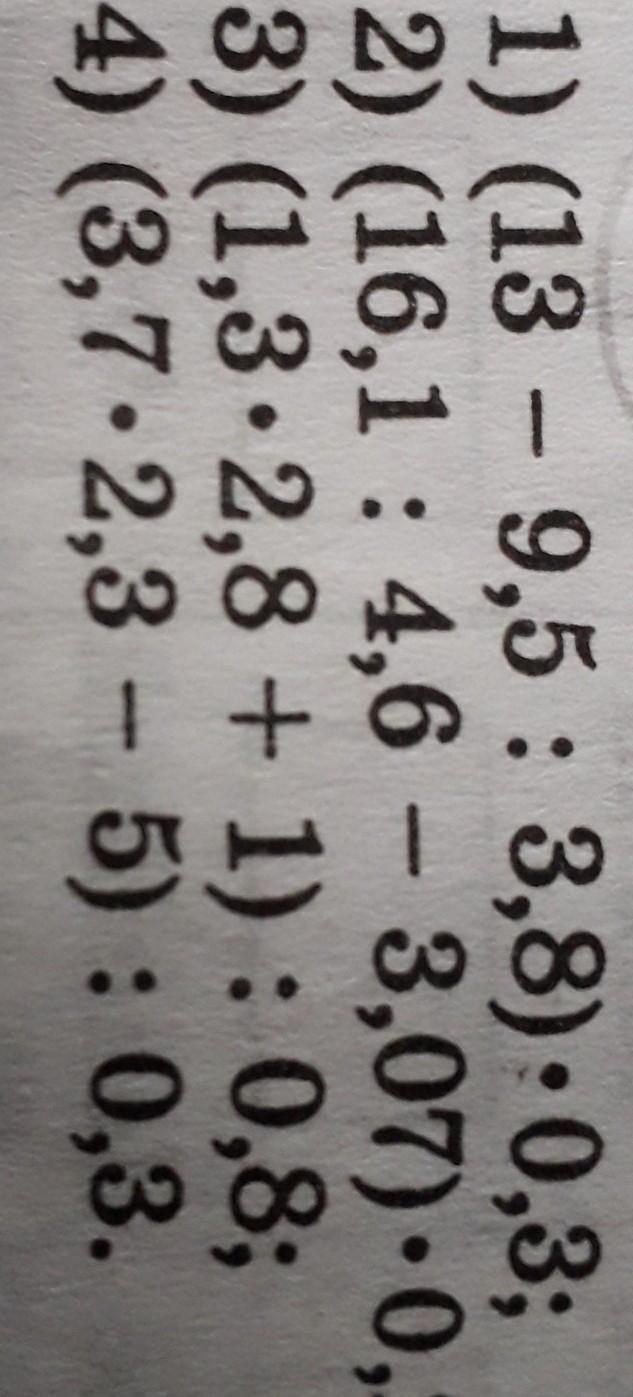 1) (13 – 9,5 : 3,8) · 0,3;
2) (16,1 : 4,6 – 3,07) · 0,
3) (1,3 · 2,8 + 1) : 0,8;
4) (3,7 · 2,3 – 5) : 0,3.